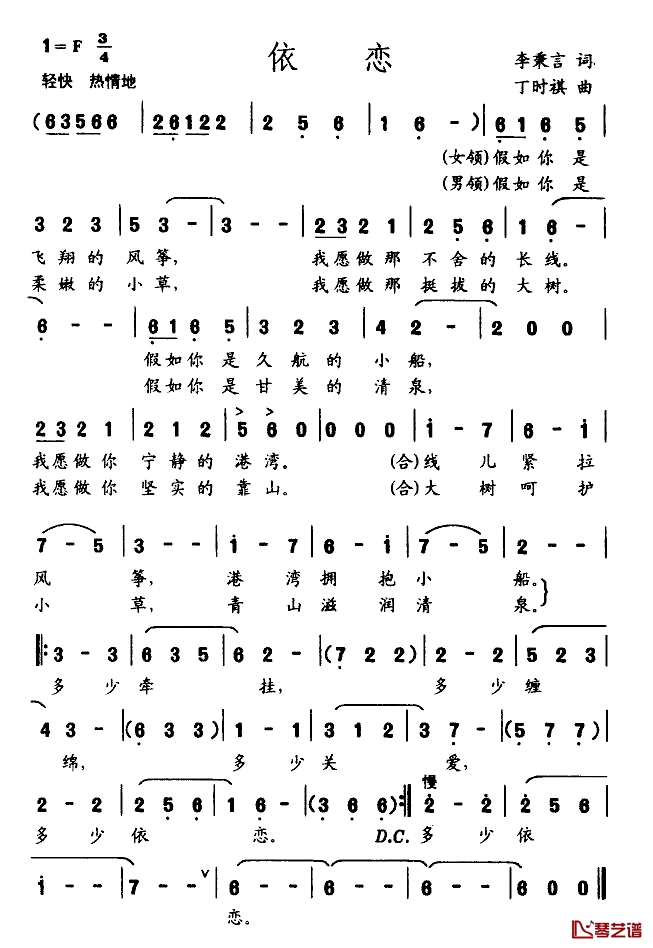 1=F 3/4
依恋
李秉言 词
轻快 热情地
丁时祺 曲
(63566 | 26122 | 2 5 6 | 1 6 - ) | 616 5 |
(女领)假如你是
(男领)假如你是
3 2 3 | 5 3 - | 3 - - | 232 1 | 2 5 6 | 1 6 - |
飞翔的风筝, 我愿做那不舍的长线。
柔嫩的小草, 我愿做那挺拔的大树。
6 - - | 616 5 | 3 2 3 | 4 2 - | 2 0 0 |
假如你是久航的小船,
假如你是甘美的清泉,
232 1 | 2 1 2 | 5 6 0 | 0 0 0 | 1 - 7 | 6 - 1 |
我愿做你宁静的港湾。 (合)线儿紧拉
我愿做你坚实的靠山。 (合)大树呵护
7 - 5 | 3 - - | 1 - 7 | 6 - 1 | 7 - 5 | 2 - - |
风筝, 港湾拥抱小船。
小草, 青山滋润清泉。
3 - 3 | 6 3 5 | 6 2 - | (7 2 2) | 2 - 2 | 5 2 3 |
多少牵挂, 多少缠
4 3 - | (6 3 3) | 1 - 1 | 3 1 2 | 3 7 - | (5 7 7) |
绵, 多少关爱,
慢
2 - 2 | 2 5 6 | 1 6 - | (3 6 6) :| 2 - 2 | 2 5 6 |
多少依恋。 D.C. 多少依
1 - - | 7 - - | 6 - - | 6 - - | 6 - - | 6 0 0 |
恋。
琴艺谱